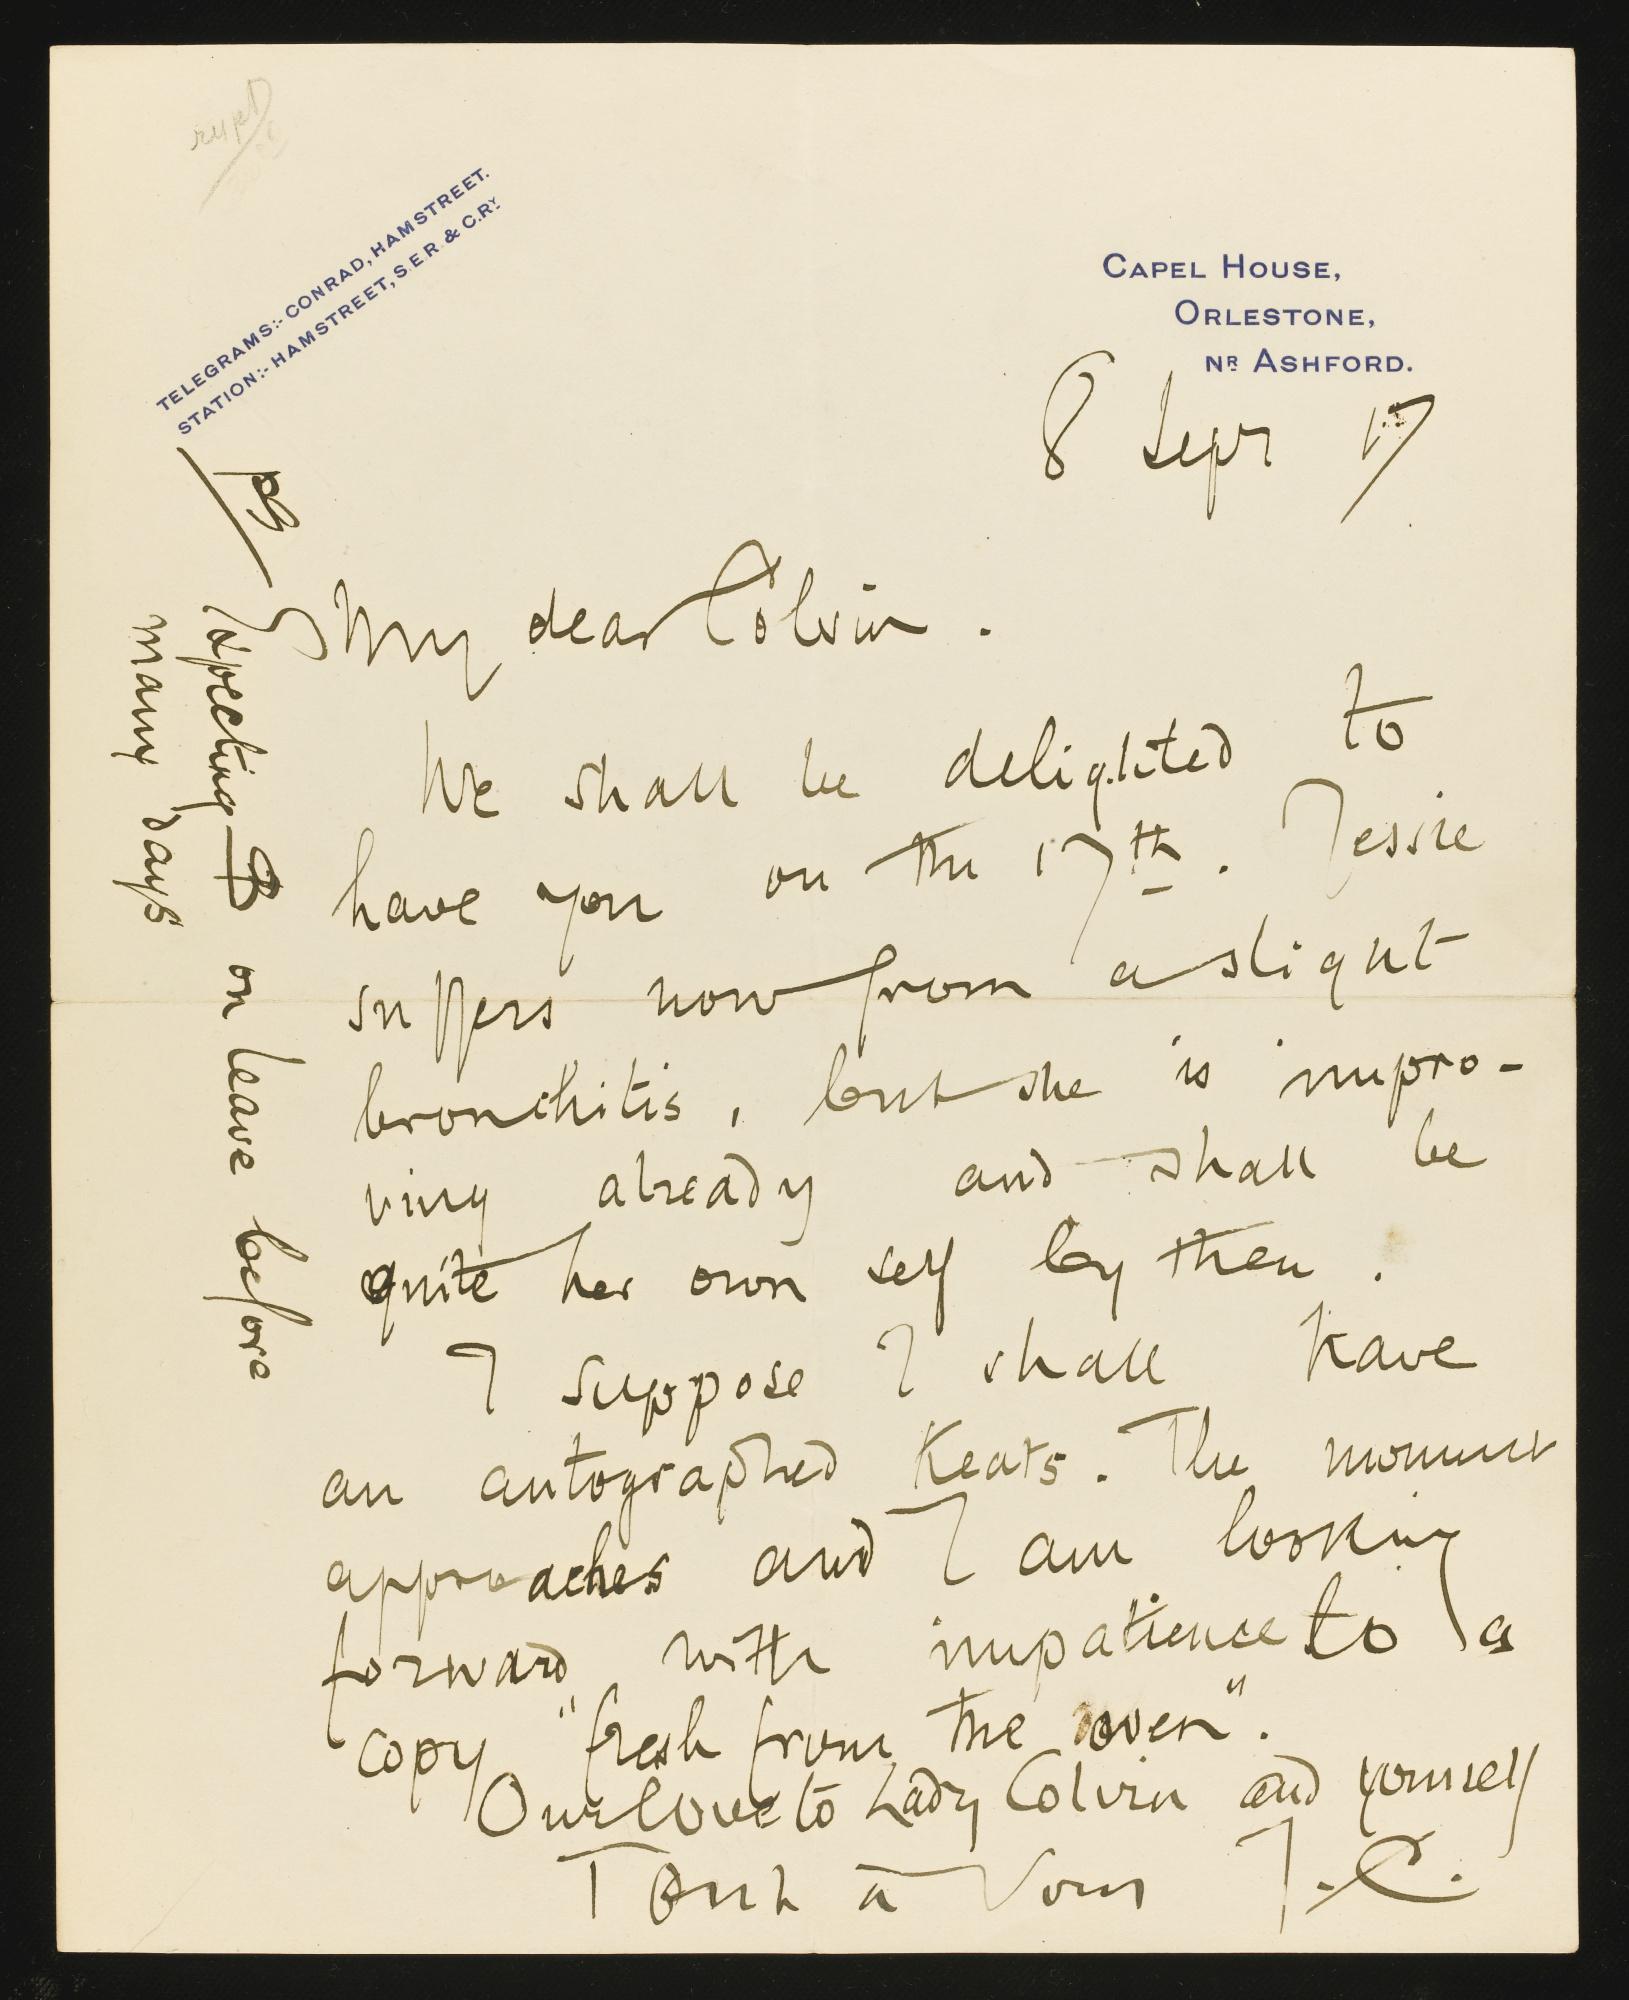 TELEGRAMS:- CONRAD, HAMSTREET.
STATION:- HAMSTREET, S.E.R. & C.RY.
CAPEL HOUSE,
ORLESTONE,
NR ASHFORD.
8 Sept 17
My dear Colvin.
We shall be delighted to
have you on the 17th. Jessie
suffers now from a slight
bronchitis, but she is impro-
ving already and shall be
quite her own self by then.
I suppose I shall have
an autographed Keats. The moment
approaches and I am looking
forward with impatience to a
copy "fresh from the oven".
Our love to Lady Colvin and yourself
Tout à Vous J.C.
PS
Expecting B on leave before
many days